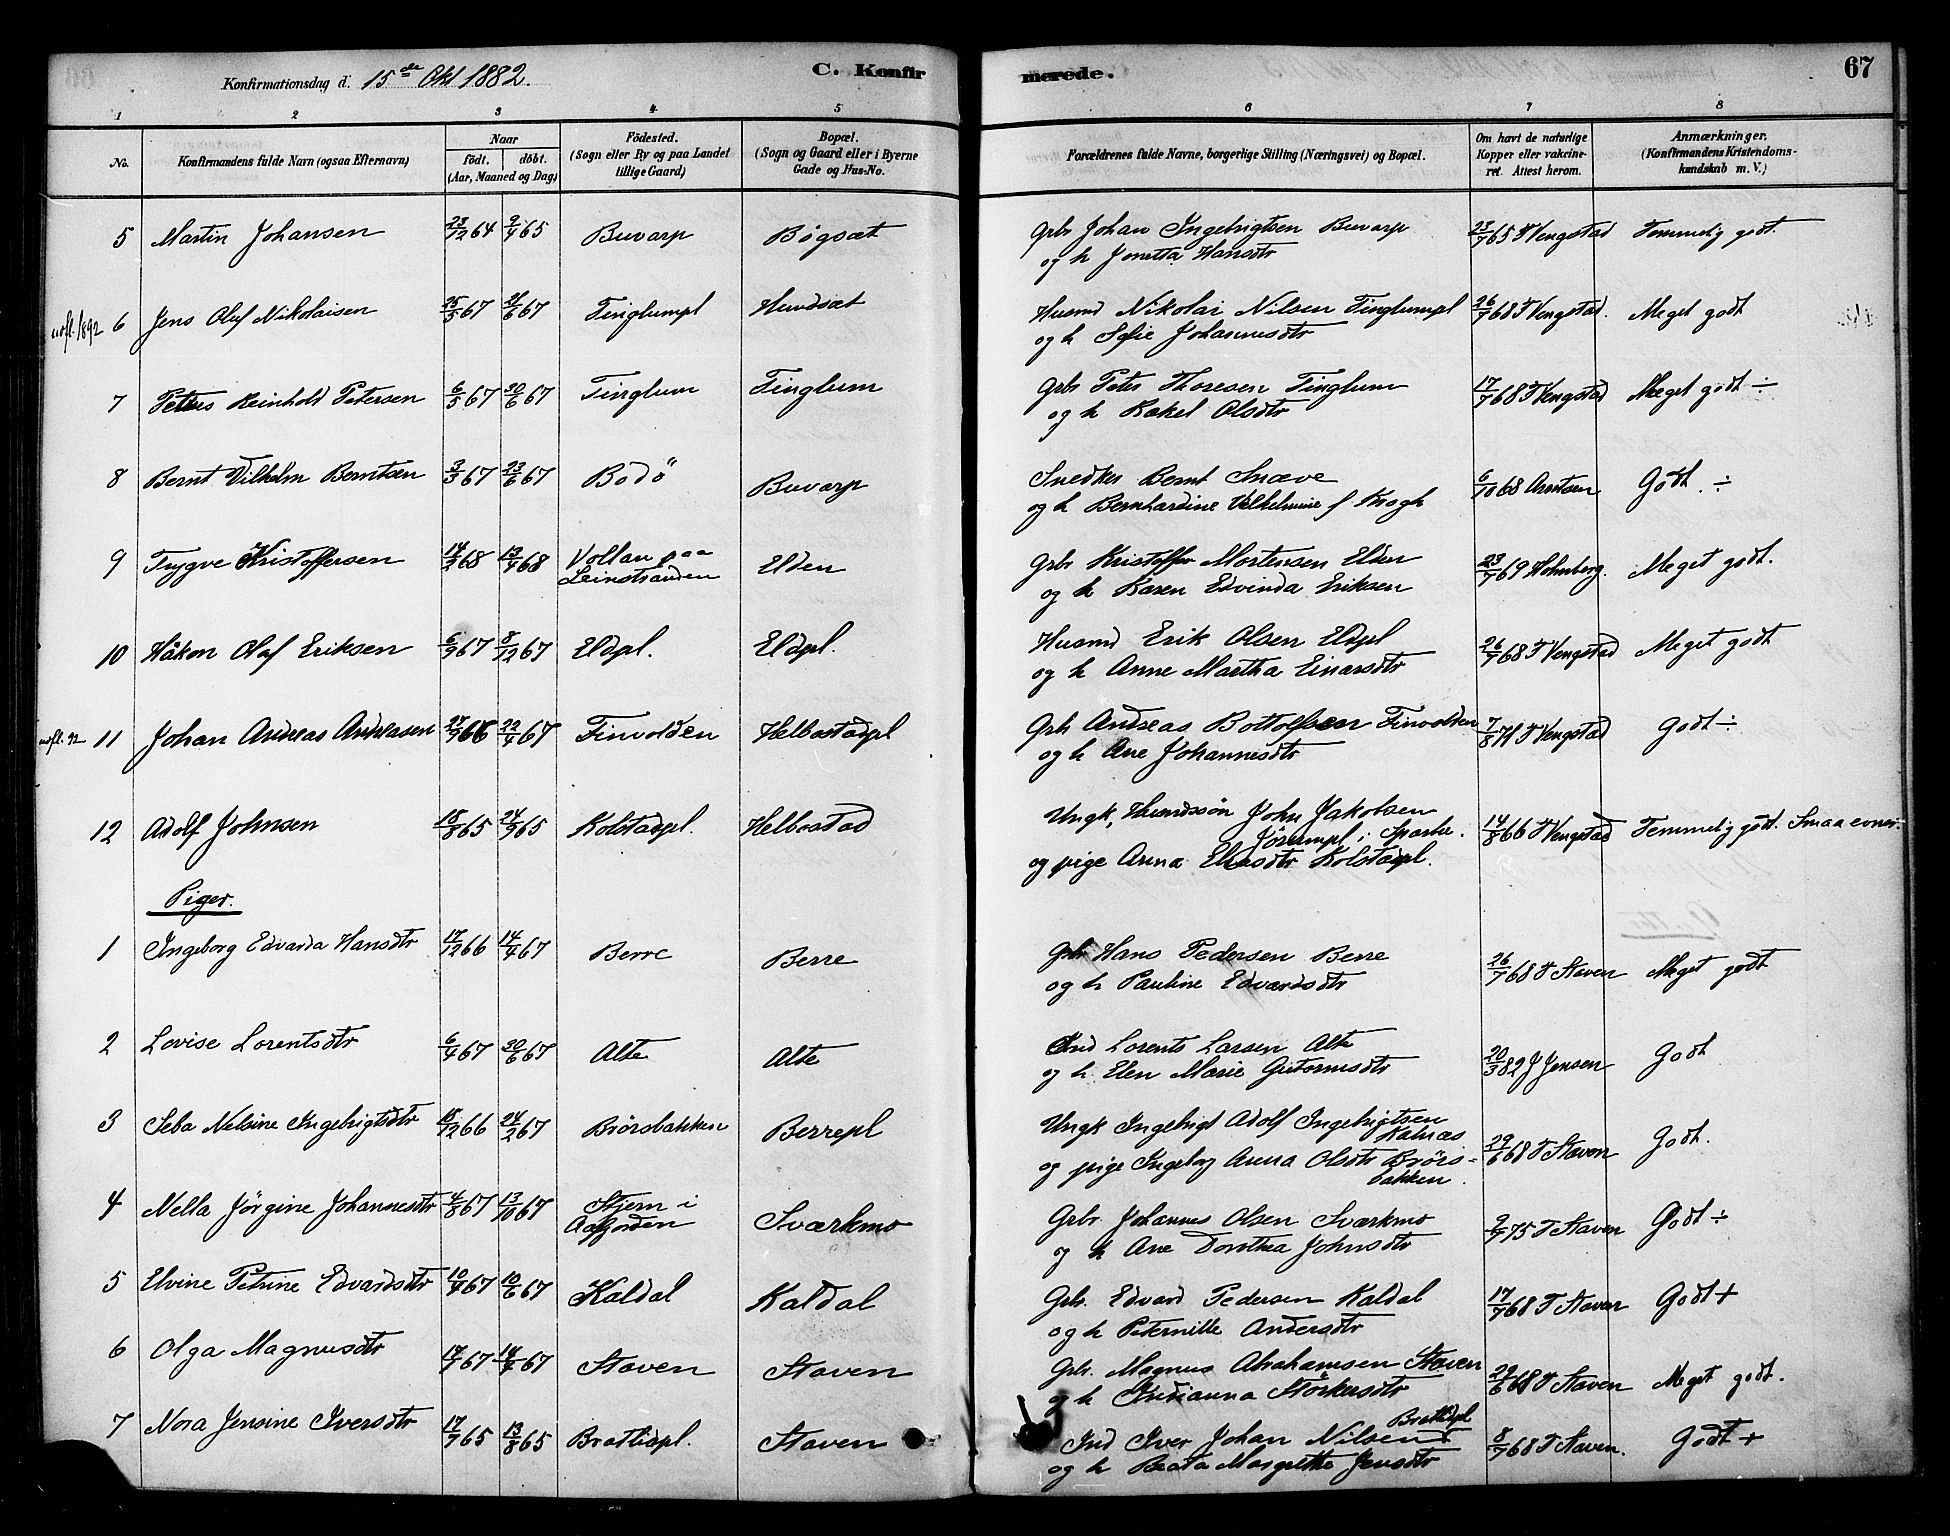 Konfirmationsdag d. 15de Okt 1882.
C. Konfir
merede.
67
1 2 3 4 5 6 7 8
No.
Konfirmandens fulde Navn (ogsaa Efternavn)
Naar
födt. döbt.
(Aar, Maaned og Dag)
Födested.
(Sogn eller By og paa Landet
tillige Gaard)
Bopæl.
(Sogn og Gaard eller i Byerne
Gade og Hus-No.
Forældrenes fulde Navne, borgerlige Stilling (Næringsvei) og Bopæl.
Om havt de naturlige
Kopper eller vakcine-
ret. Attest herom.
Anmærkninger.
(Konfirmandens Kristendoms-
kundskab m. V.)
5 Martin Johansen 23/12 64 9/4 65 Buvarp Bögsæt Grbr Johan Ingebrigtsen Buvarp 23/7 65 T Vengstad Temmelig godt.
og h Jonetta Hansdtr
uofl. 1892 6 Jens Oluf Nikolaisen 25/3 67 21/6 67 Tinglumpl Hundsæt Husmd Nikolai Nilsen Tinglumpl 26/7 68 T Vengstad. Meget godt
og h Sofie Johannesdtr
7 Petrus Reinhold Petersen 6/5 67 30/6 67 Tinglum Tinglum Grbr Peter Thoresen Tinglum 17/7 68 T Vengstad Meget godt ÷
og h Rakel Olsdtr
8 Bernt Vilhelm Berntsen 3/3 67 23/6 67 Bodö Buvarp Snedker Bernt Snæve 6/10 68 Arntsen Godt. ÷
og h Bernhardine Vilhelmine f Krogh
9 Trygve Kristoffersen 14/2 68 13/4 68 Vollan paa Elden Grbr Kristoffer Mortensen Elden 23/7 69 Holmberg. Meget godt.
Leinstranden og h Karen Edvinda Eriksen
10 Håkon Olaf Eriksen 6/9 67 8/12 67 Eldpl. Eldpl. Husmd Erik Olsen Eldpl 26/7 68 T Vengstad Meget godt
og h Anne Martha Einarsdtr
uofl. 92 11 Johan Andreas Andreasen 27/9 66 22/4 67 Finvolden Helbostadpl Grbr Andreas Bottolfsen Finvolden 7/8 71 T Vengstad Godt ÷
og h Ane Johannesdtr
12 Adolf Johnsen 18/8 65 24/9 65 Kolstadpl. Helbostad Ungk, Husmdssön John Jakobsen 14/8 66 T Vengstad Temmelig godt. Smaa evner.
Jörumpl i Sparbu.
og pige Anna Eliasdtr Kolstadpl.
Piger.
1 Ingeborg Edvarda Hansdtr 17/12 66 14/4 67 Berre Berre Grbr Hans Pedersen Berre 26/7 68 T Staven Meget godt
og h Pauline Edvardsdtr
2 Lovise Lorentsdtr 6/4 67 30/6 67 Alte Alte Ind Lorents Larsen Alte 20/3 82 J Jensen Godt
og h Elen Marie Gutormsdtr
3 Seba Nelsine Ingebrigtsdtr 18/12 66 24/2 67 Brörsbakken Berrepl Ungk Ingebrigt Adolf Ingebrigtsen 29/6 68 T Staven Godt.
Kalnæs
og pige Ingeborg Anna Olsdtr Brörs-
bakken.
4 Nella Jörgine Johannesdtr 4/8 67 13/10 67 Stjern i Sværkmo Grbr Johannes Olsen Sværkmo 9/7 75 T Staven Godt ÷
Aafjorden og h Ane Dorthea Johnsdtr
5 Elvine Petrine Edvardsdtr 10/4 67 10/6 67 Kaldal Kaldal Grbr. Edvard Pedersen Kaldal 17/7 68 T Staven Godt +
og h Peternille Andersdtr
6 Olga Magnusdtr 17/1 67 14/4 67 Staven Staven Grbr. Magnus Abrahamsen Staven 29/6 68 T Staven Meget godt.
og h Störkersdtr
7 Nora Jensine Iversdtr 17/7 65 13/8 65 Bratlidpl. Staven Ind Iver Johan Nilsen Bratlidpl 8/7 68 T Staven. Godt +
og h Beata Margrethe Jensdtr